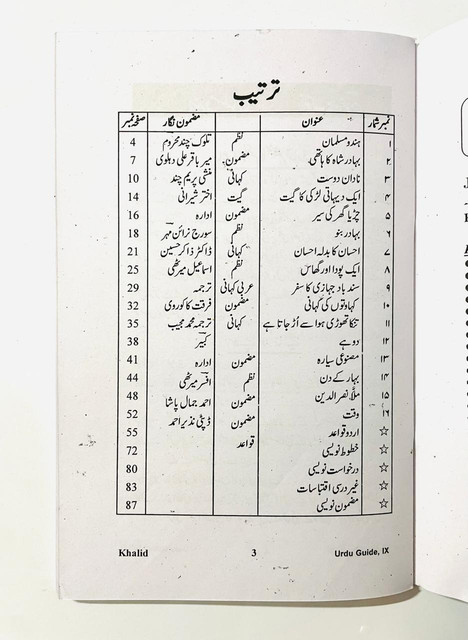 ترتیب
نمبر شمار عنوان مضمون نگار صفحہ نمبر
۱ ہندو مسلمان نظم تلوک چند محروم 4
۲ بہادر شاہ کا ہاتھی مضمون میر باقر علی دہلوی 7
۳ نادان دوست کہانی منشی پریم چند 10
۴ ایک دیہاتی لڑکی کا گیت گیت اختر شیرانی 14
۵ چڑیا گھر کی سیر مضمون ادارہ 16
۶ بہادر بنو نظم سورج نرائن مہر 18
۷ احسان کا بدلہ احسان کہانی ڈاکٹر ذاکر حسین 21
۸ ایک پودا اور گھاس نظم اسماعیل میرٹھی 25
۹ سند باد جہازی کا سفر عربی کہانی ترجمہ 29
۱۰ کہاوتوں کی کہانی مضمون فرقت کاکوروی 32
۱۱ تنکا تھوڑی ہوا سے اُڑ جاتا ہے کہانی ترجمہ محمد مجیب 35
۱۲ دوہے کبیر 38
۱۳ مصنوعی سیارہ مضمون ادارہ 41
۱۴ بہار کے دن نظم افسر میرٹھی 44
۱۵ ملّا نصر الدین مضمون احمد جمال پاشا 48
۱۶ وقت مضمون ڈپٹی نذیر احمد 52
☆ اردو قواعد قواعد 55
☆ خطوط نویسی 72
☆ درخواست نویسی 80
☆ غیر درسی اقتباسات 83
☆ مضمون نویسی 87
Khalid 3 Urdu Guide, IX